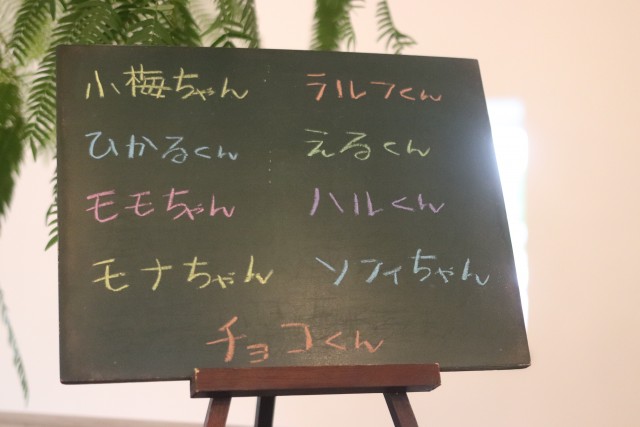 小梅ちゃん ラルフくん
ひかるくん えるくん
モモちゃん ハルくん
モナちゃん ソフィちゃん
チョコくん